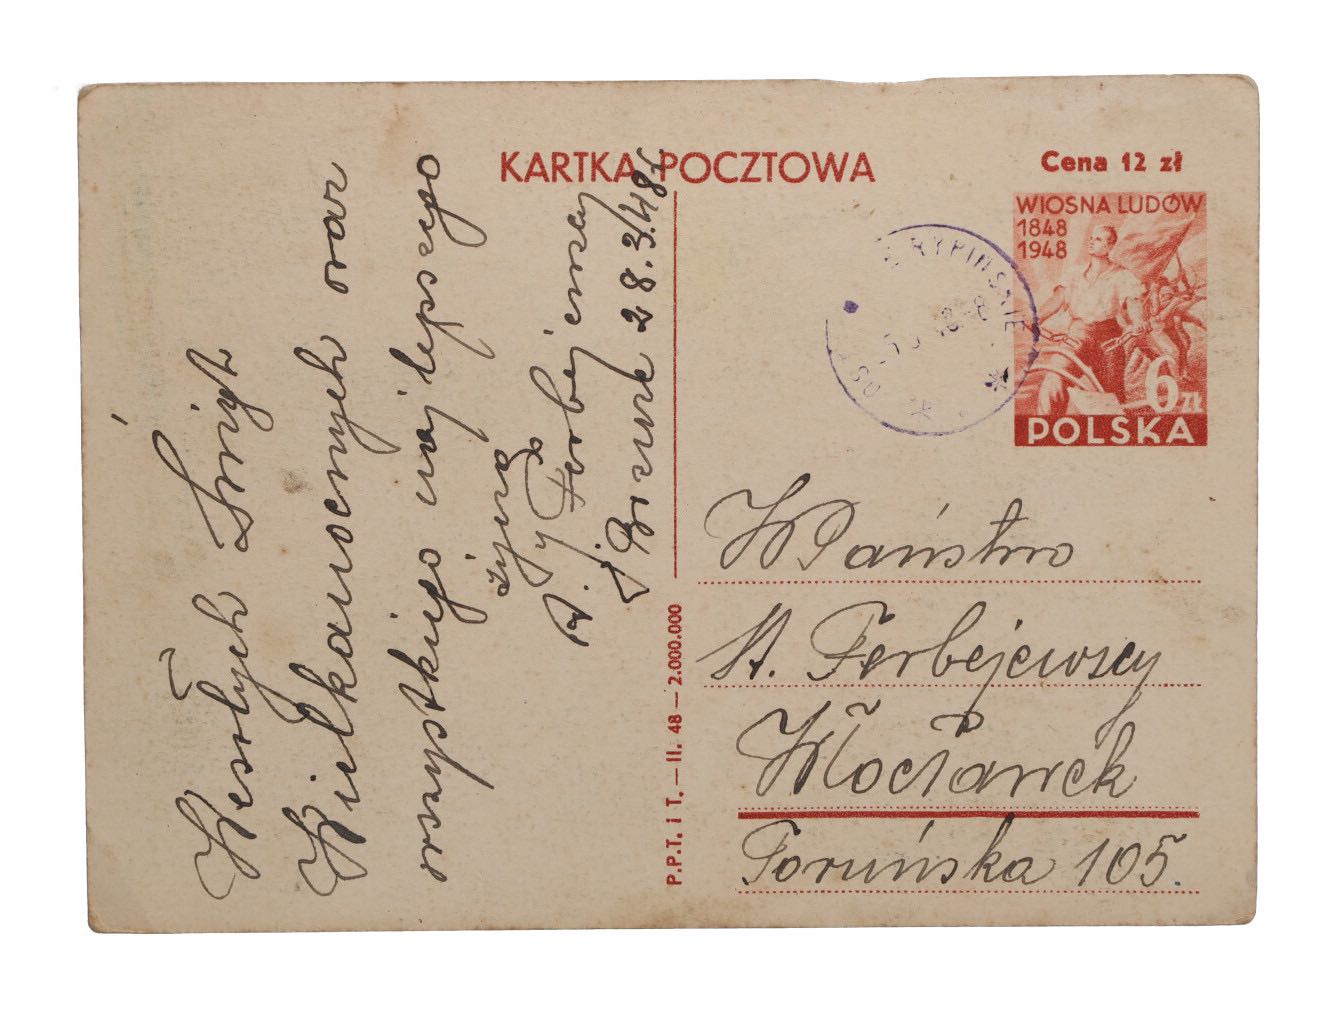 KARTKA POCZTOWA
Cena 12 zł
WIOSNA LUDÓW
1848
1948
6 zł
POLSKA
RYPIŃSKIE
Wesołych Świąt
Wielkanocnych oraz
wszystkiego najlepszego
życzą
Ferbejewscy
28.3.48r
P.P.T. i T. — II. 48 — 2.000.000
WPaństwo
St. Ferbejewscy
Włocławek
Toruńska 105.